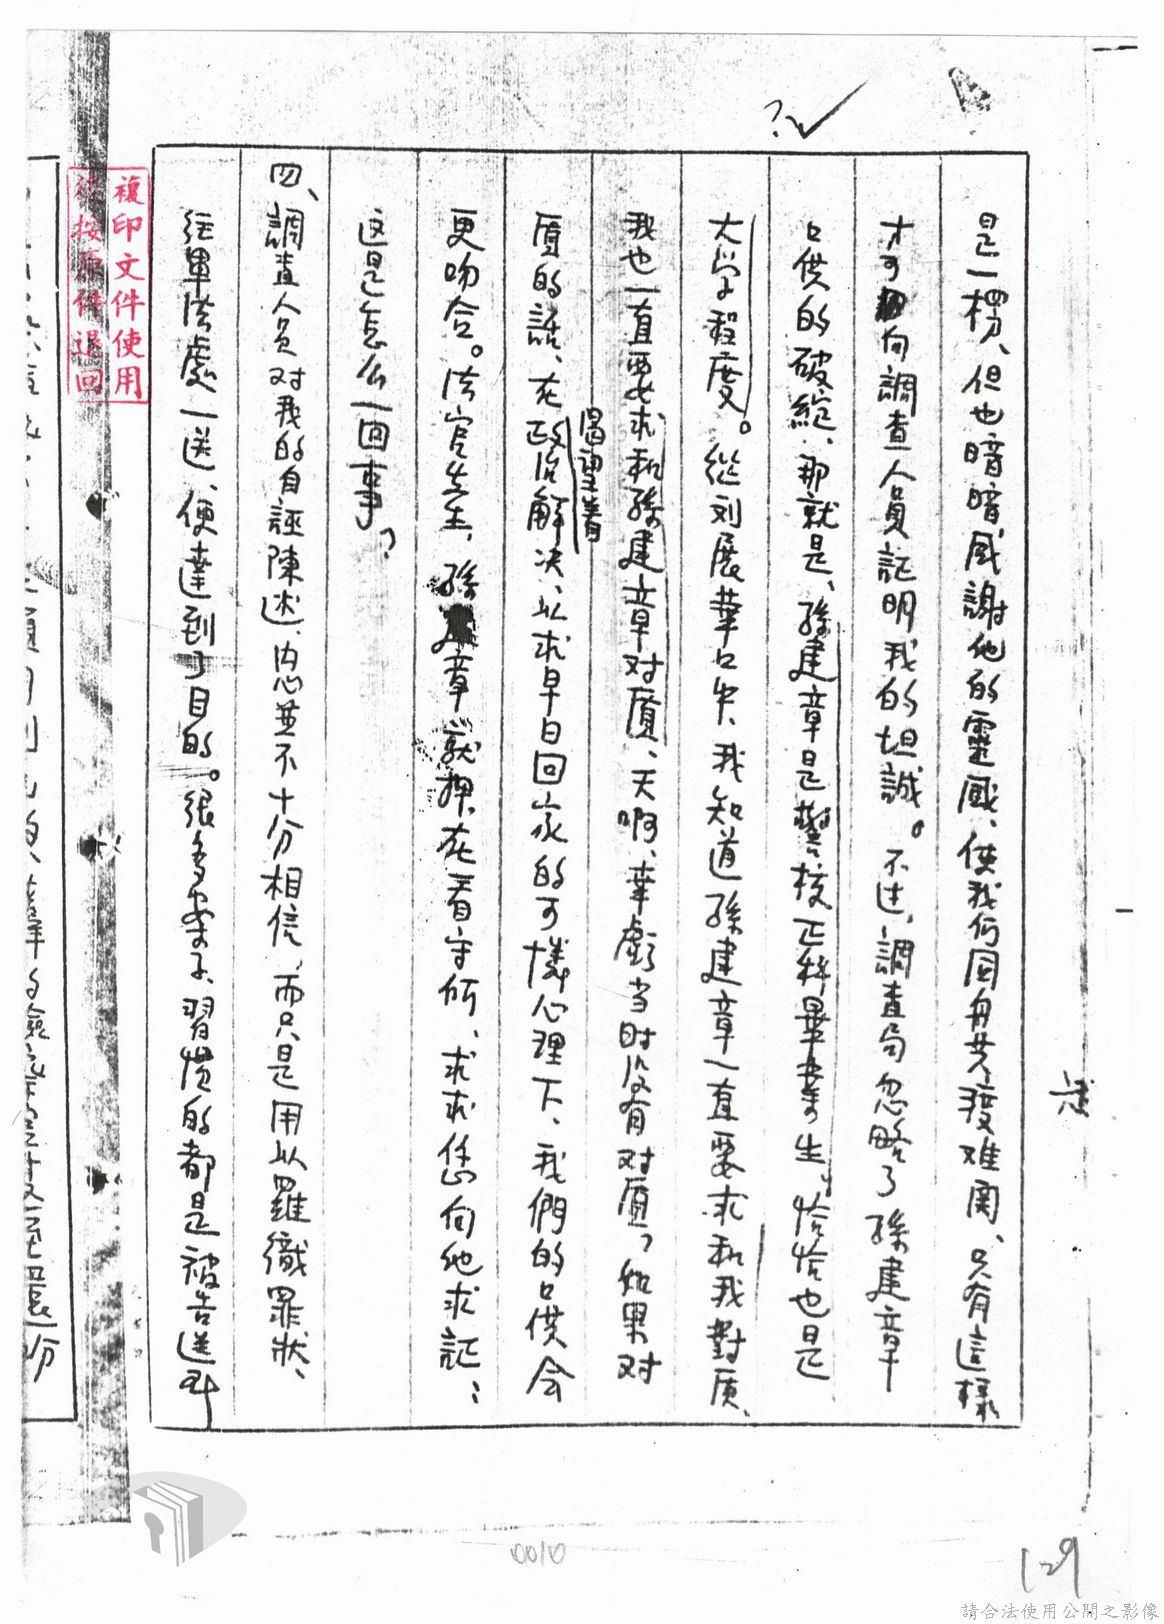 是一楞、但也暗暗感謝他的靈感、使我們同舟共渡难関、只有這樣
才可向調查人員証明我的坦誠。不过,調查局忽略了孫建章
口供的破綻、那就是、孫建章是警校正科畢業生。恰恰也是
大学程度。從刘展華口中、我知道孫建章一直要求和我對质、
我也一直要求和孫建章对质、天啊、幸虧当时没有对质,如果对
质的話、在政治解决、以求早日回家的可憐心理下、我們的口供会
渴望着
更吻合。法官先生,孫建章就押在看守所、求求您向他求証:
这是怎么一回事?
四、調查人员对我的自誣陳述、内心並不十分相信、而只是用以羅織罪狀、
往軍法處一送、便達到了目的。很多案子、習慣的都是被告送到
複印文件使用
後按原件退回
0010
129
請合法使用公開之影像